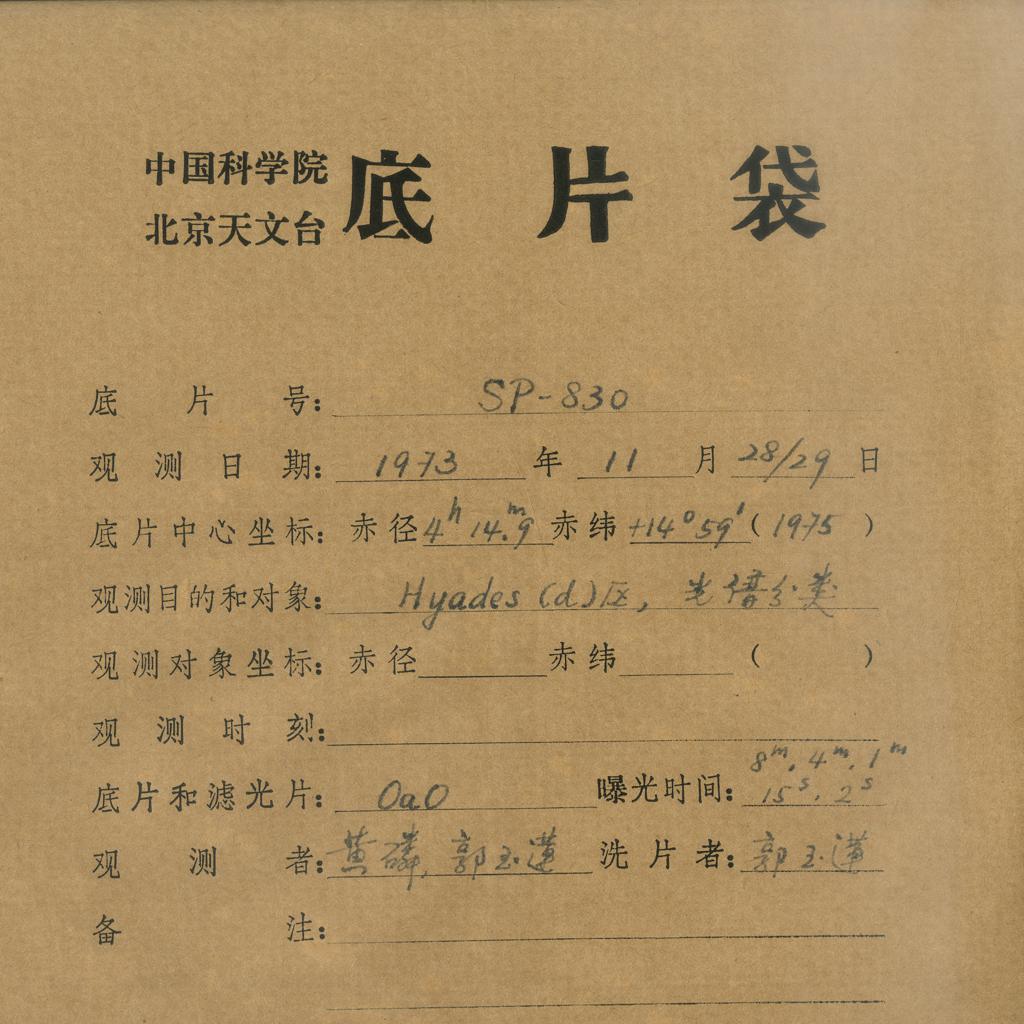 中国科学院
北京天文台
底片袋
底片号: SP-830
观测日期: 1973 年 11 月 28/29 日
底片中心坐标: 赤径 4h 14.m9 赤纬 +14°59′ (1975)
观测目的和对象: Hyades (d)区, 光谱分类
观测对象坐标: 赤径 赤纬 ( )
观测时刻:
底片和滤光片: OaO 曝光时间: 8m, 4m, 1m
15s, 2s
观测者: 黄磷, 郭玉 洗片者: 郭玉
备注: